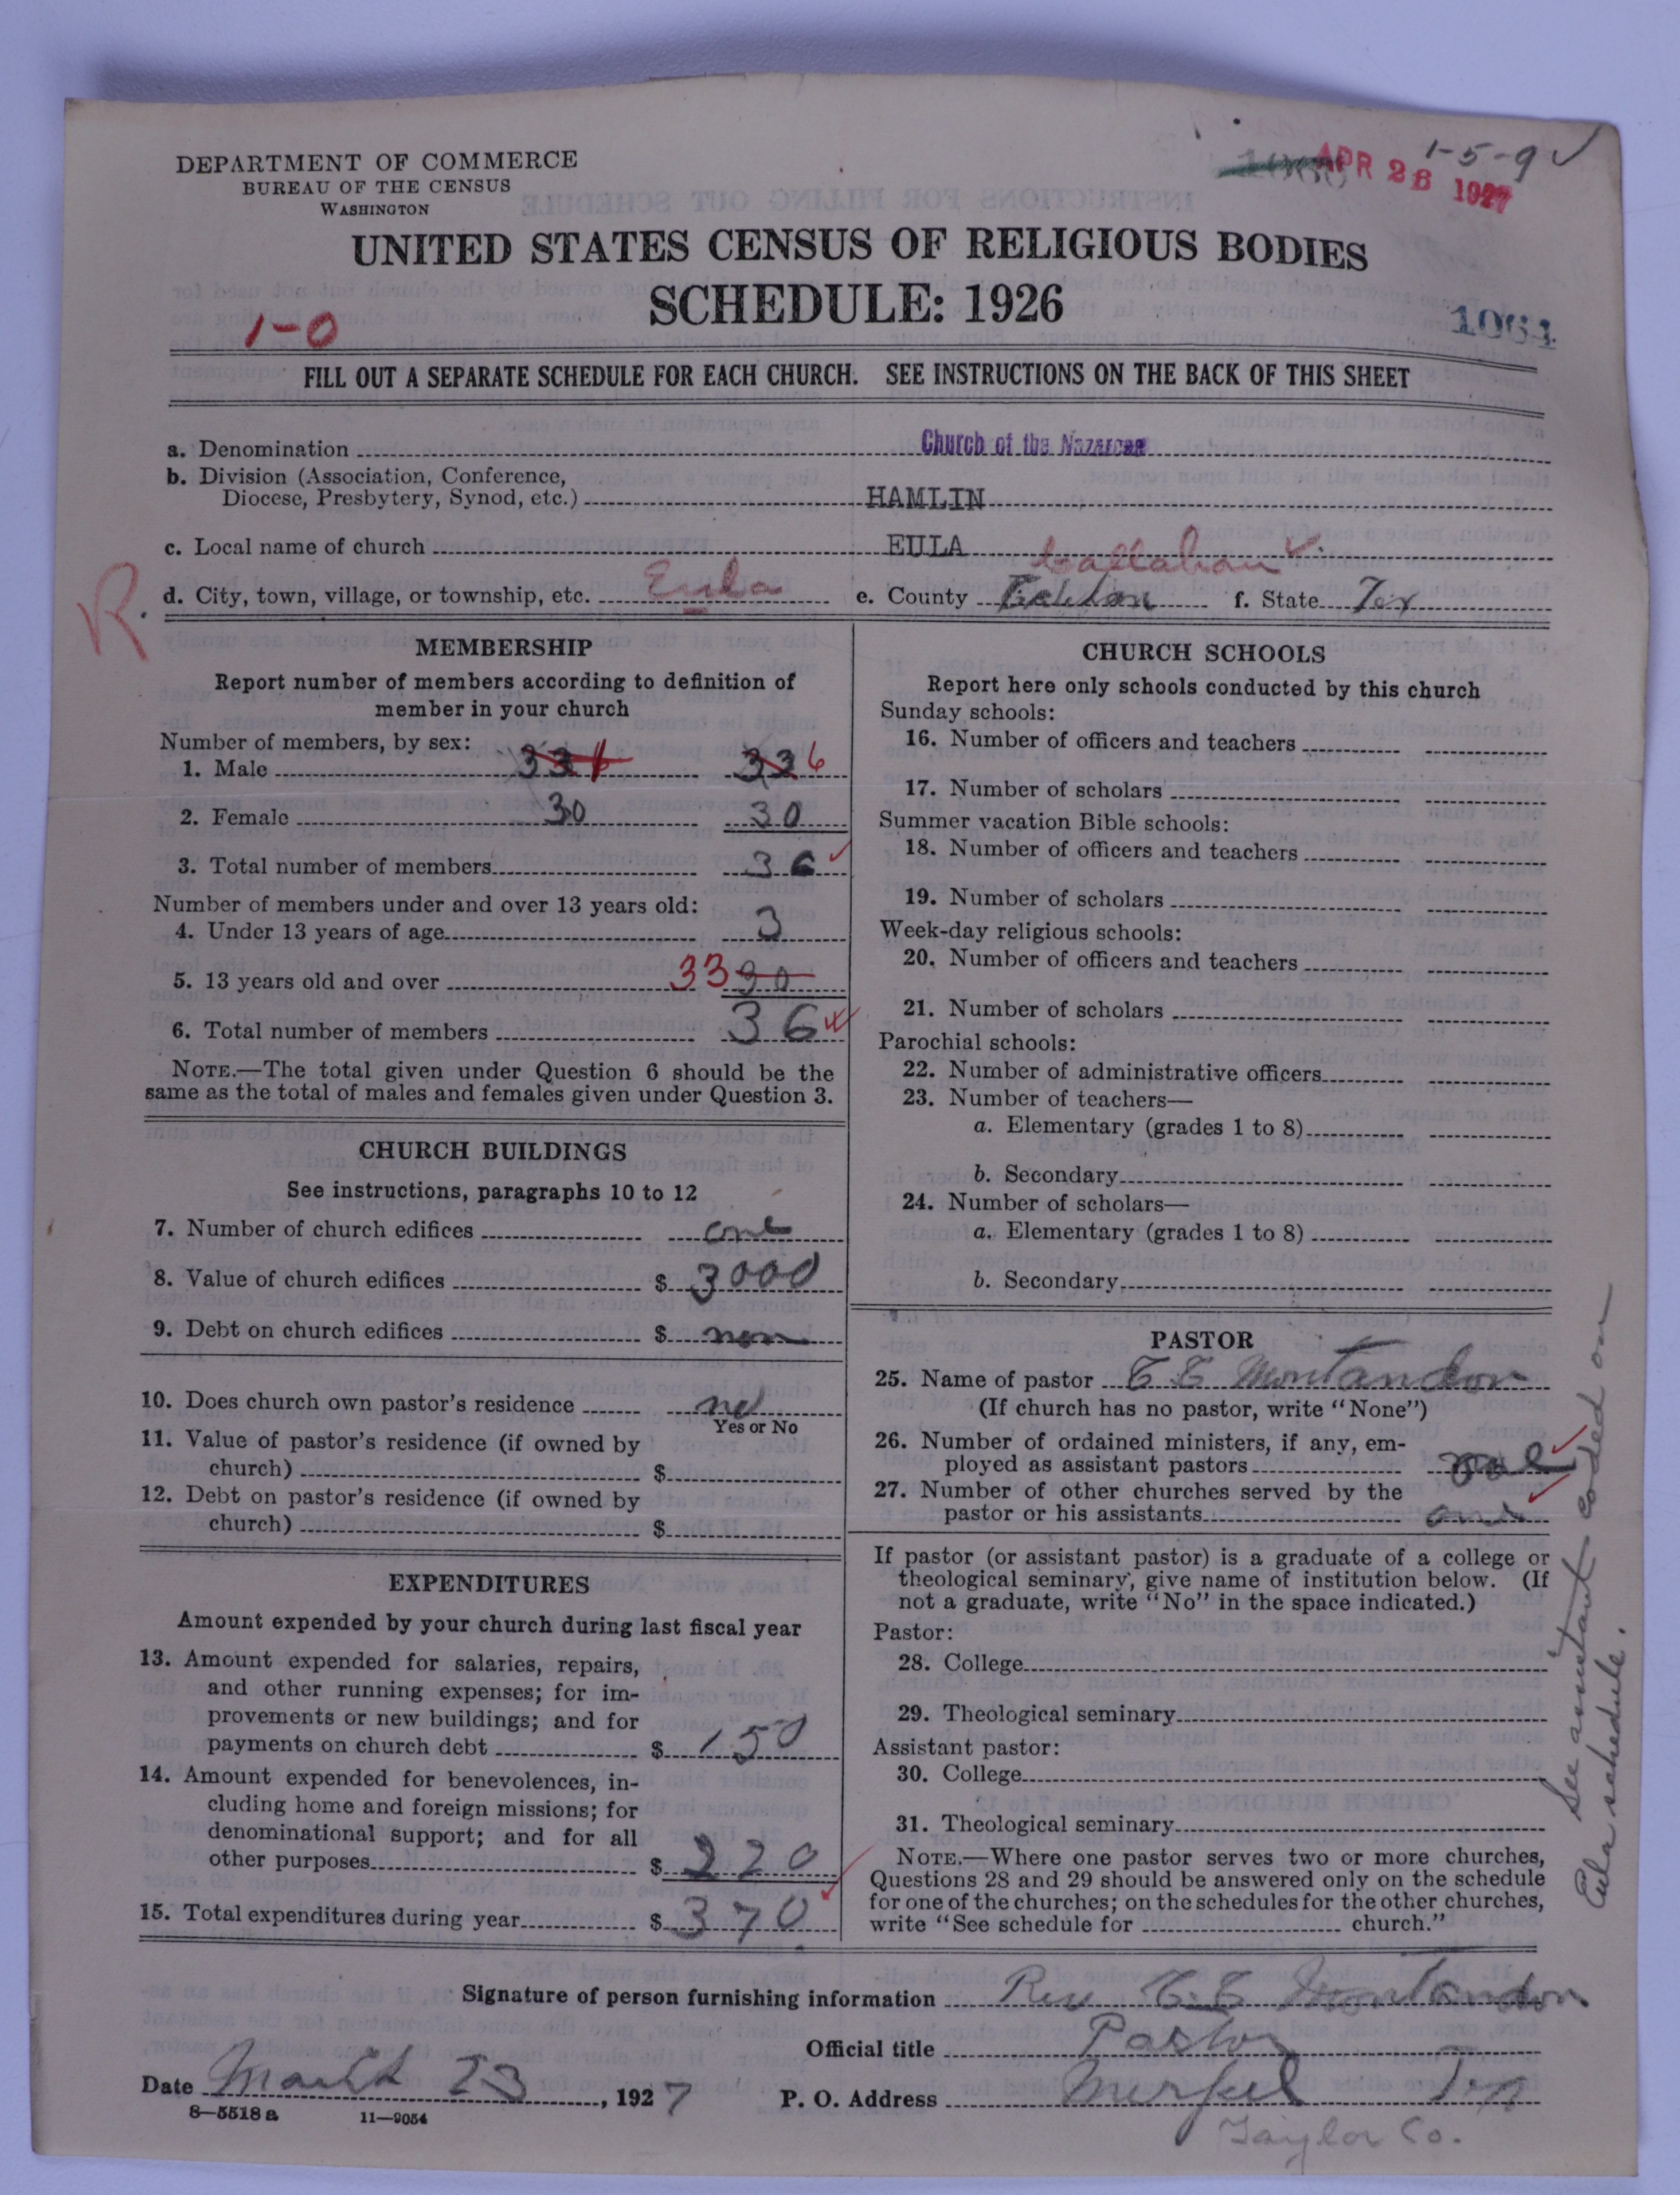 DEPARTMENT OF COMMERCE
BUREAU OF THE CENSUS
WASHINGTON
1-5-9 ✓
APR 26 1927
UNITED STATES CENSUS OF RELIGIOUS BODIES
SCHEDULE: 1926
1-0
1064
FILL OUT A SEPARATE SCHEDULE FOR EACH CHURCH. SEE INSTRUCTIONS ON THE BACK OF THIS SHEET
a. Denomination Church of the Nazarene
b. Division (Association, Conference,
Diocese, Presbytery, Synod, etc.) HAMLIN
c. Local name of church EULA
Callahan ✓.
R.
d. City, town, village, or township, etc. Eula e. County f. State Tex
MEMBERSHIP
Report number of members according to definition of
member in your church
Number of members, by sex:
1. Male 33 6 33 6
2. Female 30 30
3. Total number of members 36 ✓
Number of members under and over 13 years old:
4. Under 13 years of age 3
5. 13 years old and over 33 30
6. Total number of members 36 ✓
NOTE.—The total given under Question 6 should be the
same as the total of males and females given under Question 3.
CHURCH BUILDINGS
See instructions, paragraphs 10 to 12
7. Number of church edifices one
8. Value of church edifices $ 3000
9. Debt on church edifices $ non
10. Does church own pastor's residence no
Yes or No
11. Value of pastor's residence (if owned by
church) $
12. Debt on pastor's residence (if owned by
church) $
EXPENDITURES
Amount expended by your church during last fiscal year
13. Amount expended for salaries, repairs,
and other running expenses; for im-
provements or new buildings; and for
payments on church debt $ 150
14. Amount expended for benevolences, in-
cluding home and foreign missions; for
denominational support; and for all
other purposes $ 220
15. Total expenditures during year $ 370 ✓
CHURCH SCHOOLS
Report here only schools conducted by this church
Sunday schools:
16. Number of officers and teachers
17. Number of scholars
Summer vacation Bible schools:
18. Number of officers and teachers
19. Number of scholars
Week-day religious schools:
20. Number of officers and teachers
21. Number of scholars
Parochial schools:
22. Number of administrative officers
23. Number of teachers—
a. Elementary (grades 1 to 8)
b. Secondary
24. Number of scholars—
a. Elementary (grades 1 to 8)
b. Secondary
PASTOR
25. Name of pastor C E Montandon
(If church has no pastor, write "None")
26. Number of ordained ministers, if any, em-
ployed as assistant pastors one ✓
27. Number of other churches served by the
pastor or his assistants one ✓
If pastor (or assistant pastor) is a graduate of a college or
theological seminary, give name of institution below. (If
not a graduate, write "No" in the space indicated.)
Pastor:
28. College
29. Theological seminary
Assistant pastor:
30. College
31. Theological seminary
NOTE.—Where one pastor serves two or more churches,
Questions 28 and 29 should be answered only on the schedule
for one of the churches; on the schedules for the other churches,
write "See schedule for church."
See assistant coded on
Eula schedule.
Signature of person furnishing information Rev C. E Montandon
Official title Pastor
Date March 23, 1927 P. O. Address Merkel Tex
8—5518 a 11—9054
Taylor Co.